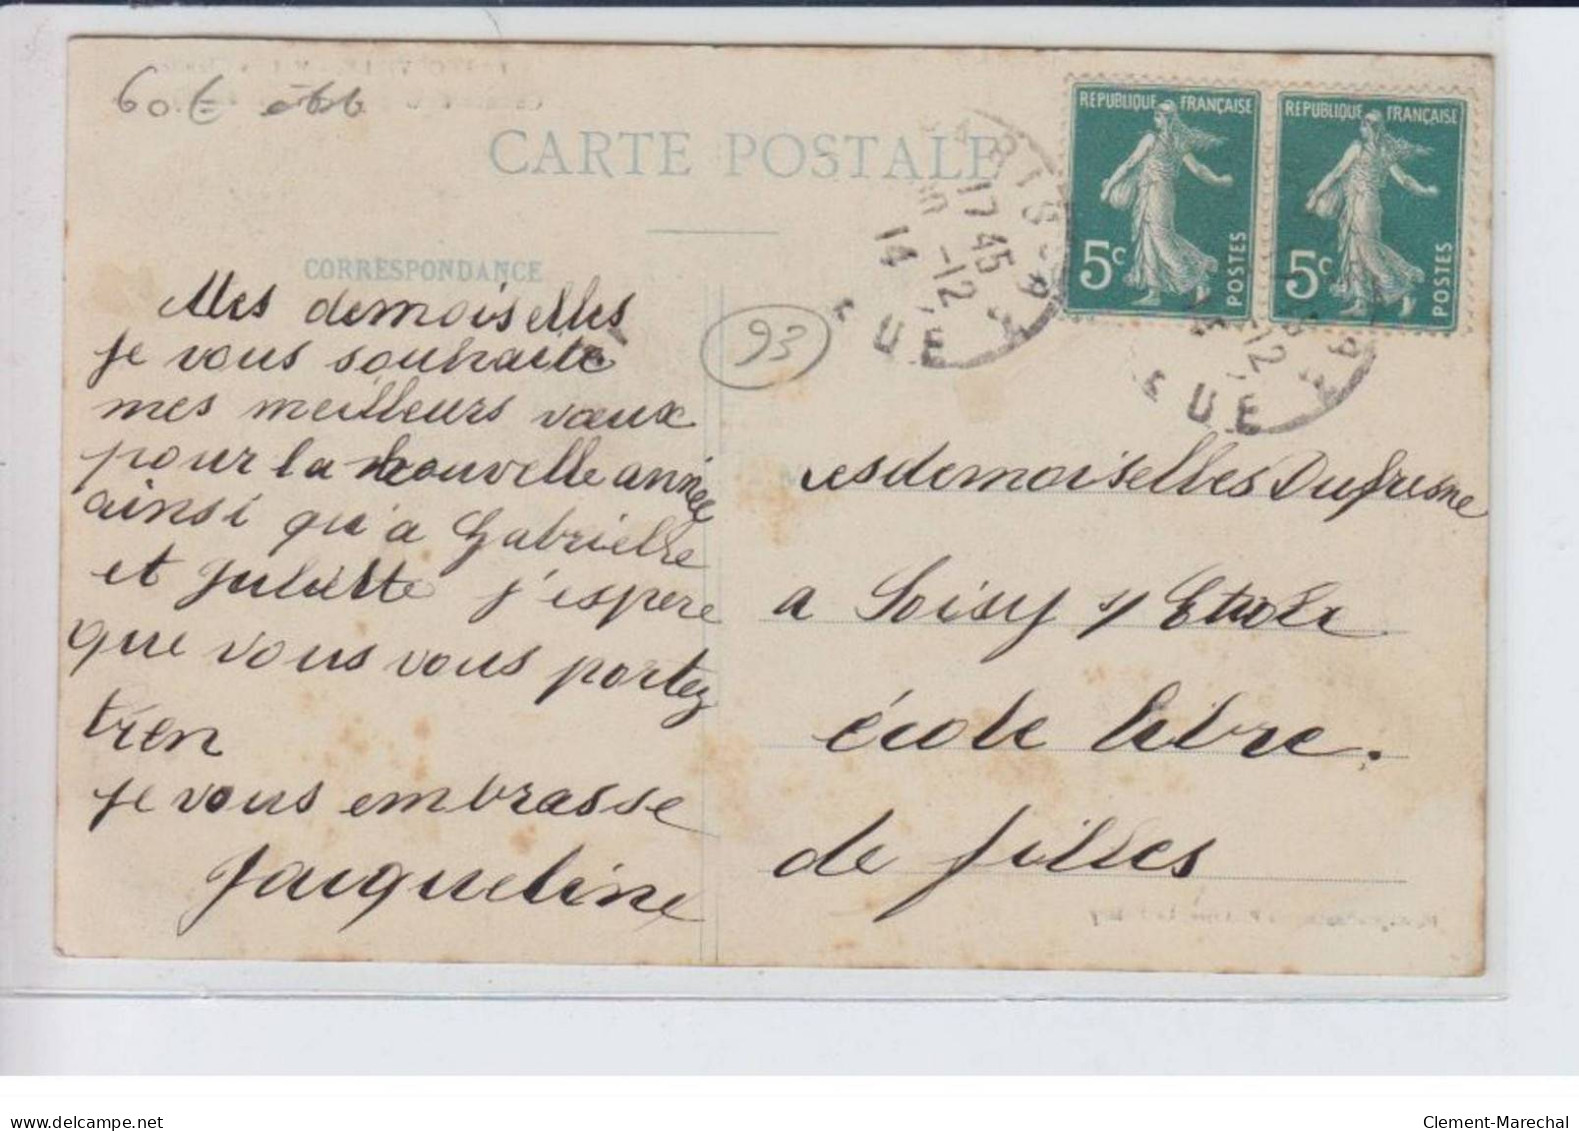 60 €
CARTE POSTALE
REPUBLIQUE FRANÇAISE
5c
POSTES
REPUBLIQUE FRANÇAISE
5c
POSTES
PARIS
17 45
-12
14
RUE
-12
UE
CORRESPONDANCE
93
Mes demoiselles
je vous souhaite
mes meilleurs vœux
pour la nouvelle année
ainsi qu'a Gabrielle
et Juliette j'espere
que vous vous portez
bien
je vous embrasse
Jacqueline
Mesdemoiselles Dufresne
a Soisy s/ Etiole
école libre.
de filles
www.delcampe.net
Clement-Marechal